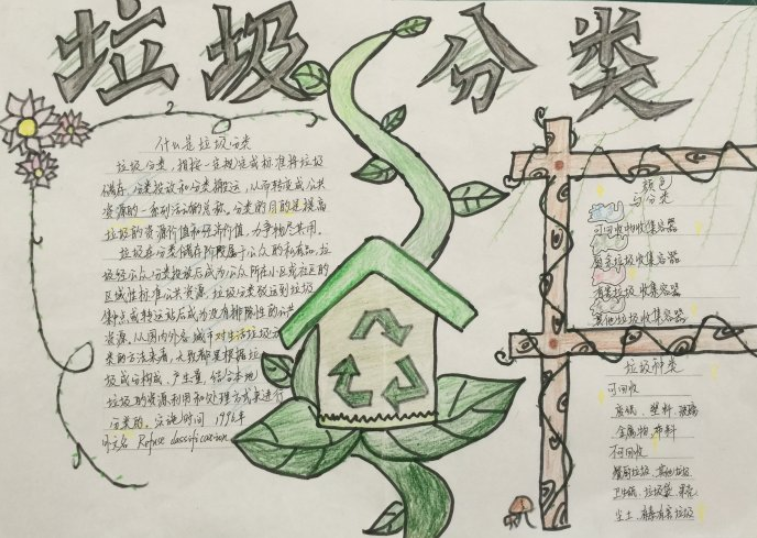 垃圾分类
什么是垃圾分类
垃圾分类,指按一定规定或标准将垃圾
储存、分类投放和分类搬运,从而转变成公共
资源的一系列活动的总称。分类的目的是提高
垃圾的资源价值和经济价值,力争物尽其用。
垃圾在分类储存阶段属于公众的私有品,垃
圾经公众分类投放后成为公众所在小区或社区的
区域性标准公共资源,垃圾分类驳运到垃圾
集中点或转运站后成为没有排除性的公共
资源。从国内外各城市对生活垃圾分
类的方法来看,大致都是根据垃
圾成分构成、产生量,结合本地
垃圾的资源利用和处理方式来进行
分类的。实施时间 1996年
外文名 Refuse classification
颜色
与分类
可回收物收集容器
厨余垃圾收集容器
有害垃圾收集容器
其他垃圾收集容器
垃圾种类
可回收
废纸、塑料、玻璃
金属物、布料
不可回收
餐厨垃圾、其他垃圾
卫生纸、垃圾袋、果壳
尘土、有毒有害垃圾